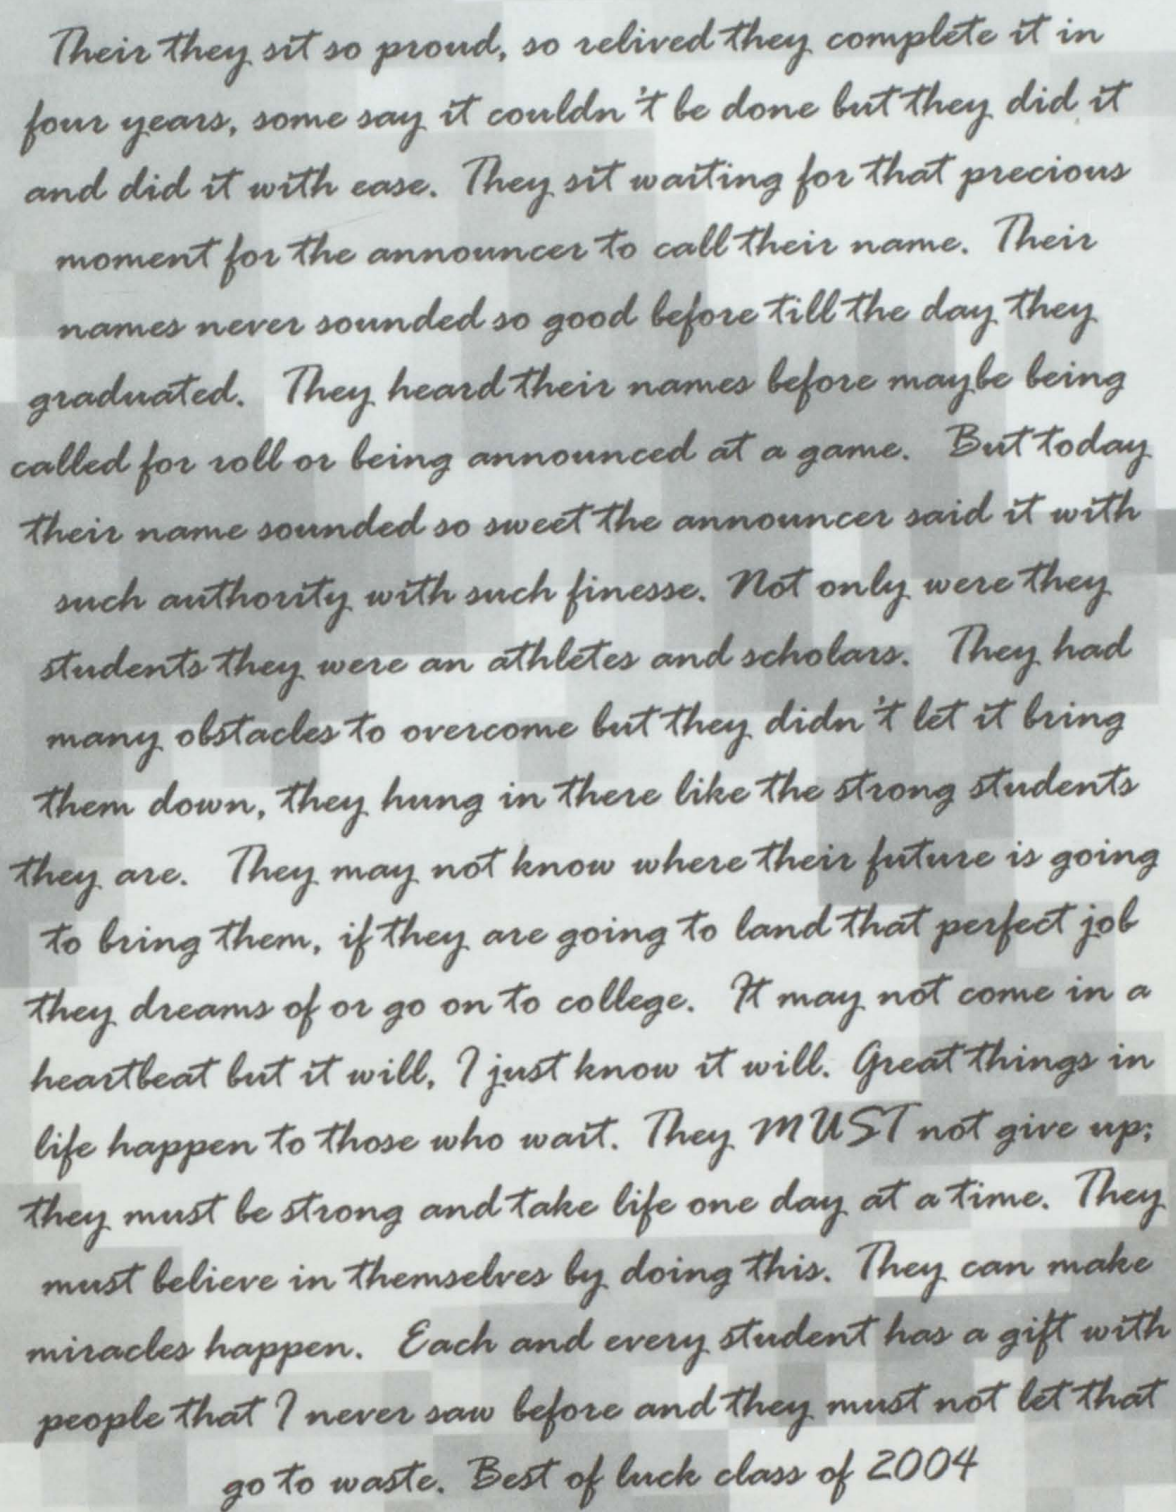 Their they sit so proud, so relived they complete it in
four years, some say it couldn't be done but they did it
and did it with ease. They sit waiting for that precious
moment for the announcer to call their name. Their
names never sounded so good before till the day they
graduated. They heard their names before maybe being
called for roll or being announced at a game. But today
their name sounded so sweet the announcer said it with
such authority with such finesse. Not only were they
students they were an athletes and scholars. They had
many obstacles to overcome but they didn't let it bring
them down, they hung in there like the strong students
they are. They may not know where their future is going
to bring them, if they are going to land that perfect job
they dreams of or go on to college. It may not come in a
heartbeat but it will, I just know it will. Great things in
life happen to those who wait. They MUST not give up;
they must be strong and take life one day at a time. They
must believe in themselves by doing this. They can make
miracles happen. Each and every student has a gift with
people that I never saw before and they must not let that
go to waste. Best of luck class of 2004